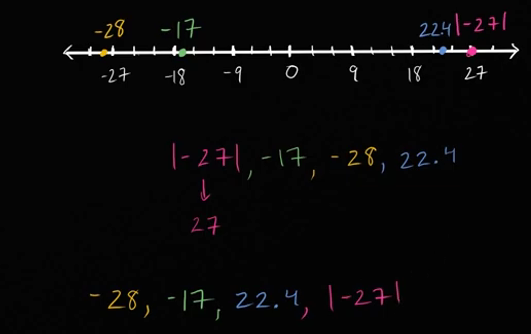 -28 -17 22.4 |-27|
-27 -18 -9 0 9 18 27
|-27|, -17, -28, 22.4
27
-28, -17, 22.4, |-27|